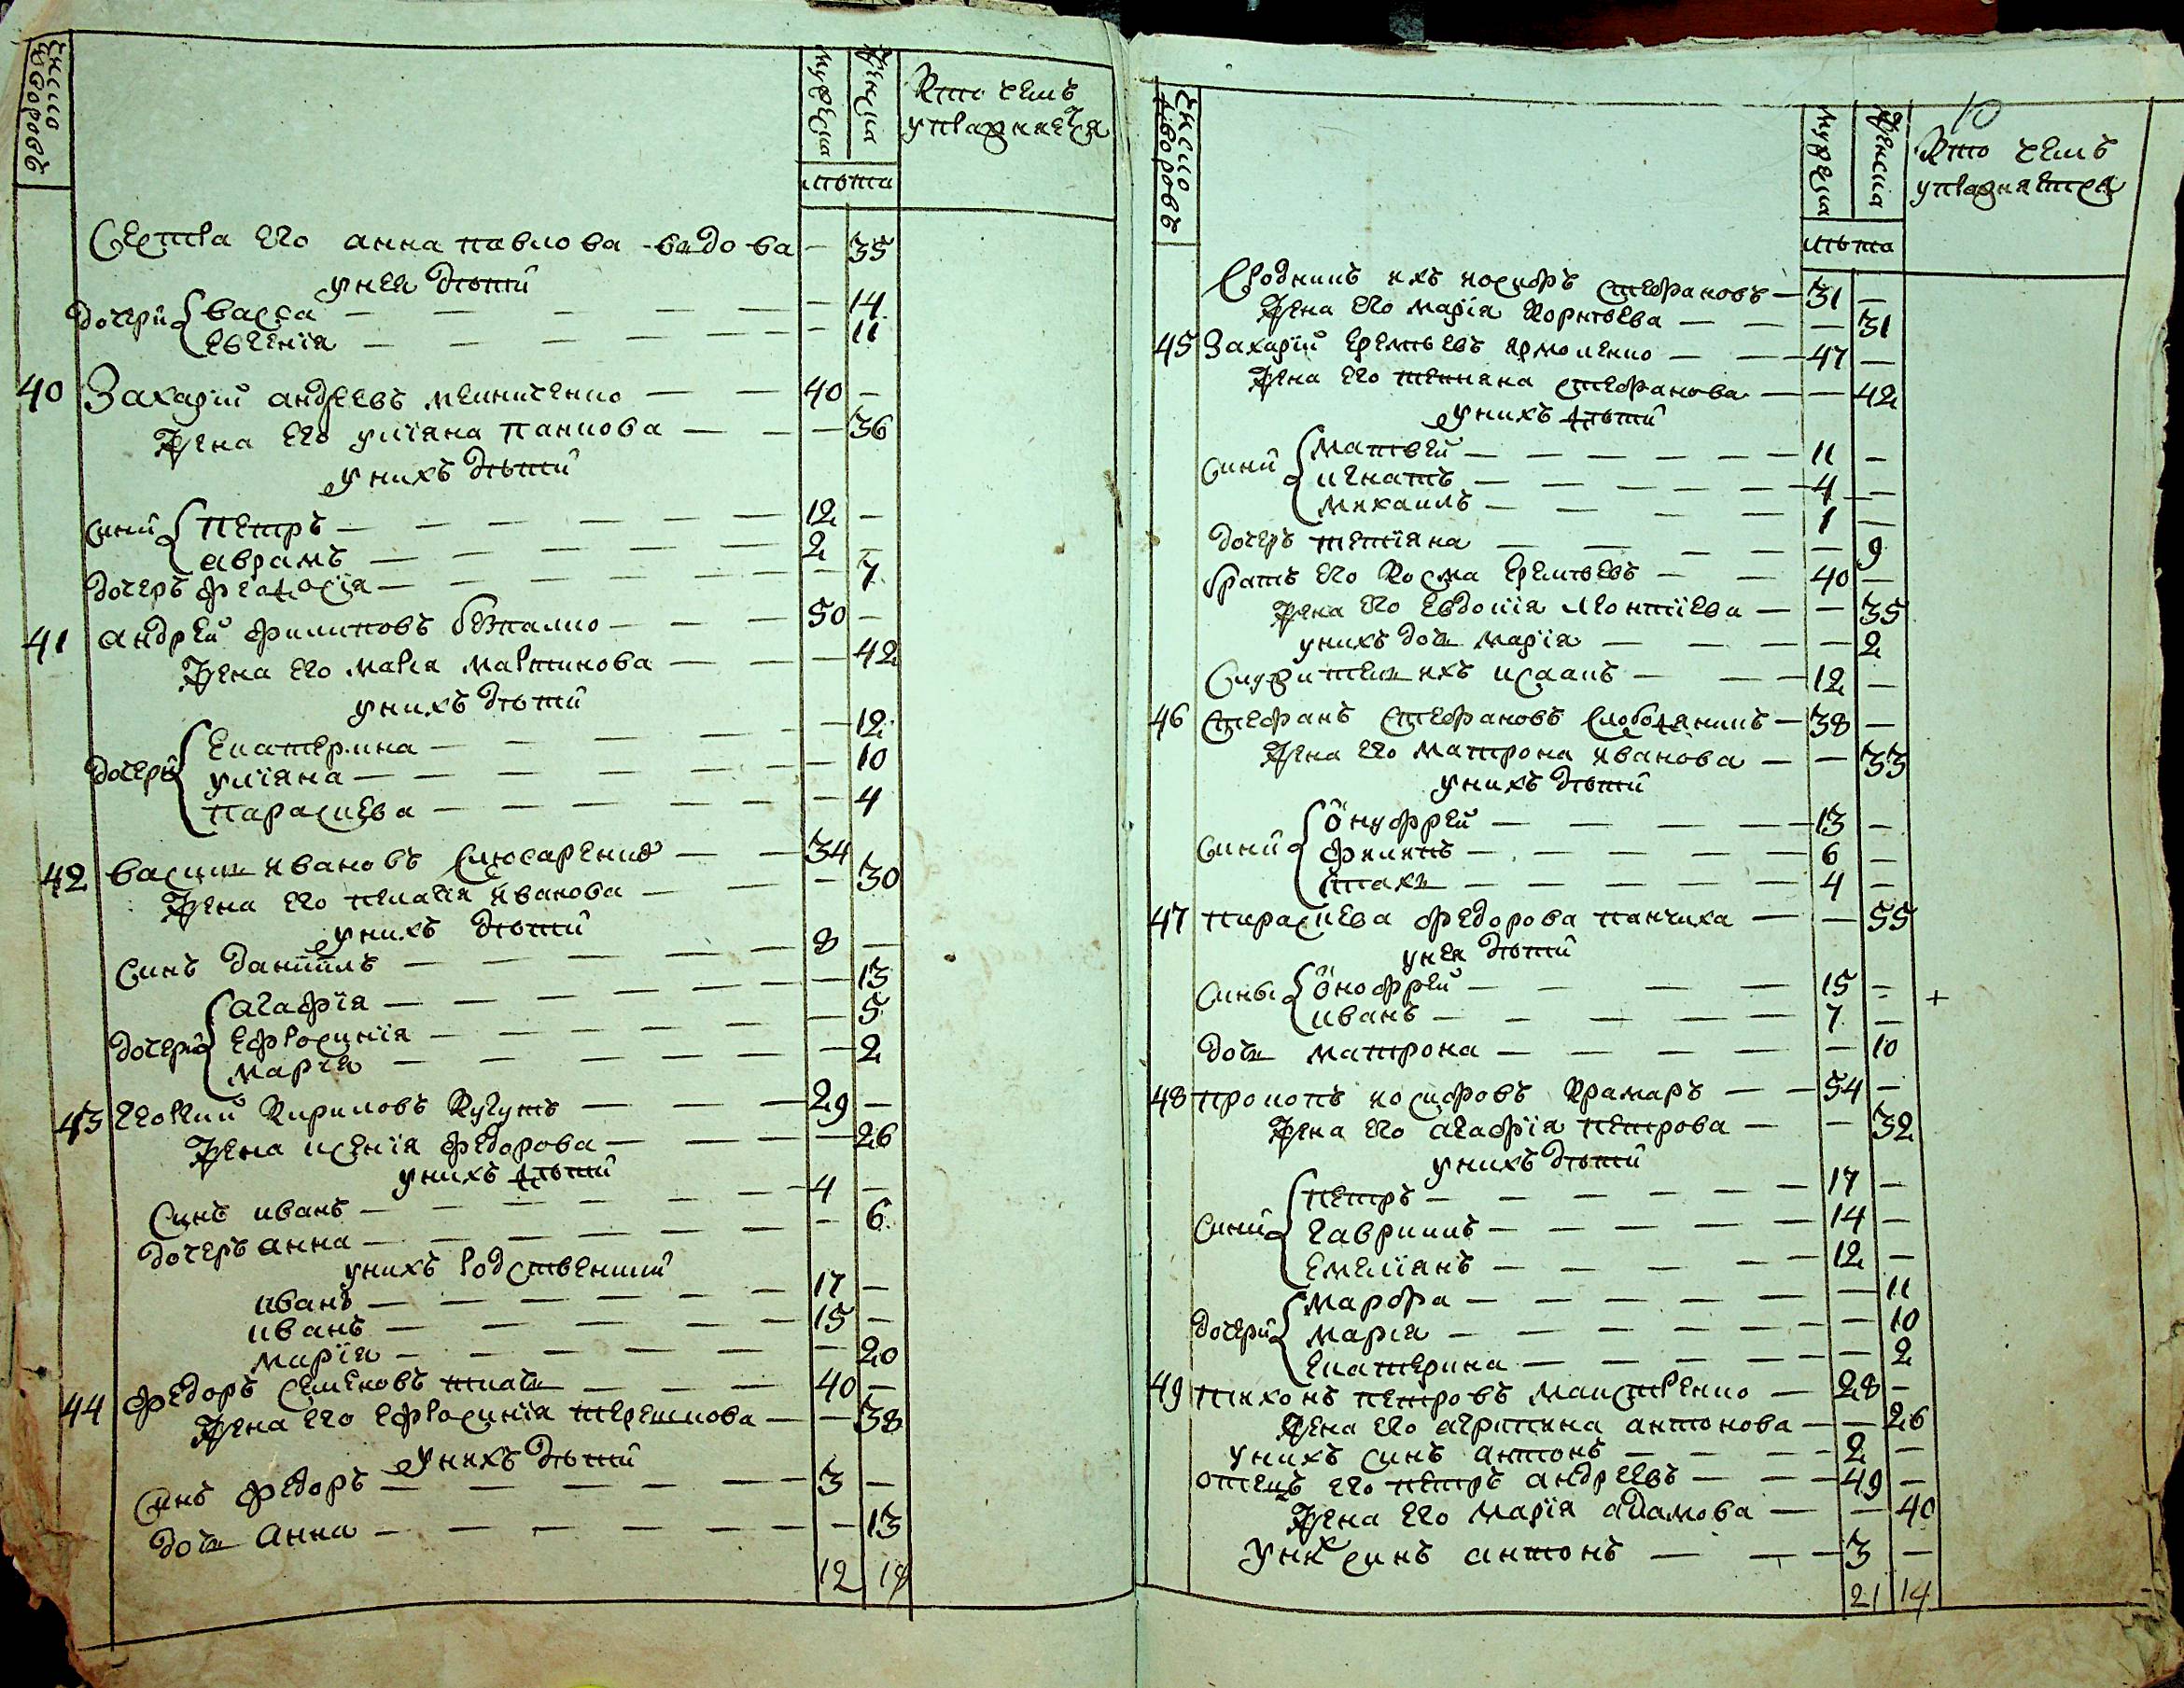 Число дворовъ
мужеска
женска
лѣта
Кто чемъ
упражняется
Сестра его анна павлова вдова — 35
унея дѣтти
дочери васса — 14
евгенія — 11
40 Захарїй андреевъ мелниченко — 40 —
Жена его улїяна панкова — 36
унихъ дѣти
сини петръ — 12 —
аврамъ — 2 —
дочеръ феодосїя — 7
41 андрей филиповъ безпалко — 50 —
Жена его марїя мартинова — 42
унихъ дѣти
дочери екатерина — 12
улїяна — 10
параскева — 4
42 василь ивановъ слюсаренко — 34
Жена его пелагїя иванова — 30
унихъ дѣти
синъ данїилъ — 8 —
дочери агафїя — 13
ефросинїя — 5
марїя — 2
43 георгий кириловъ — 29 —
Жена ксенїя федорова — 26
унихъ дѣти
синъ иванъ — 4 —
дочеръ анна — 6
унихъ родственики
иванъ — 17 —
иванъ — 15 —
марїя — 20
44 федоръ семеновъ ткачъ — 40 —
Жена его ефросинїя терешкова — 38
унихъ дѣти
синъ федоръ — 3 —
дочь анна — 13
12 14
10
Число дворовъ
мужеска
женска
лѣта
Кто чемъ
упражняется
Сродникъ ихъ иосифъ стефановъ — 31 —
Жена его марїя корнѣева — 31
45 Захарїй еремѣевъ ярмоленко — 47 —
Жена его стефанова — 42
унихъ дѣти
сини матвей — 11 —
игнатъ — 4 —
михаилъ — 1 —
дочеръ тетїяна — 9
братъ его косма еремѣевъ — 40 —
Жена его евдокїя леонтїева — 35
унихъ дочь марїя — 2
служитель ихъ исаакъ — 12 —
46 стефанъ стефановъ слободяникъ — 38 —
Жена его матрона иванова — 33
унихъ дѣти
сини онуфрей — 13 —
филипъ — 6 —
стахъ — 4 —
47 параскева федорова панчиха — 55
унея дѣти
сины онофрей — 15 — +
иванъ — 7 —
дочь матрона — 10
48 прокопъ иосифовъ крамаръ — 54 —
Жена его агафїя петрова — 32
унихъ дѣти
сини петръ — 17 —
гаврилъ — 14 —
емелїянъ — 12 —
дочери марфа — 11
марїя — 10
екатерина — 2
49 тихонъ петровъ майстренко — 28 —
Жена его агрипина антонова — 26
унихъ синъ антонъ — 2 —
отецъ его петръ андреевъ — 49 —
Жена его марїя адамова — 40
уних синъ антонъ — 3 —
21 14